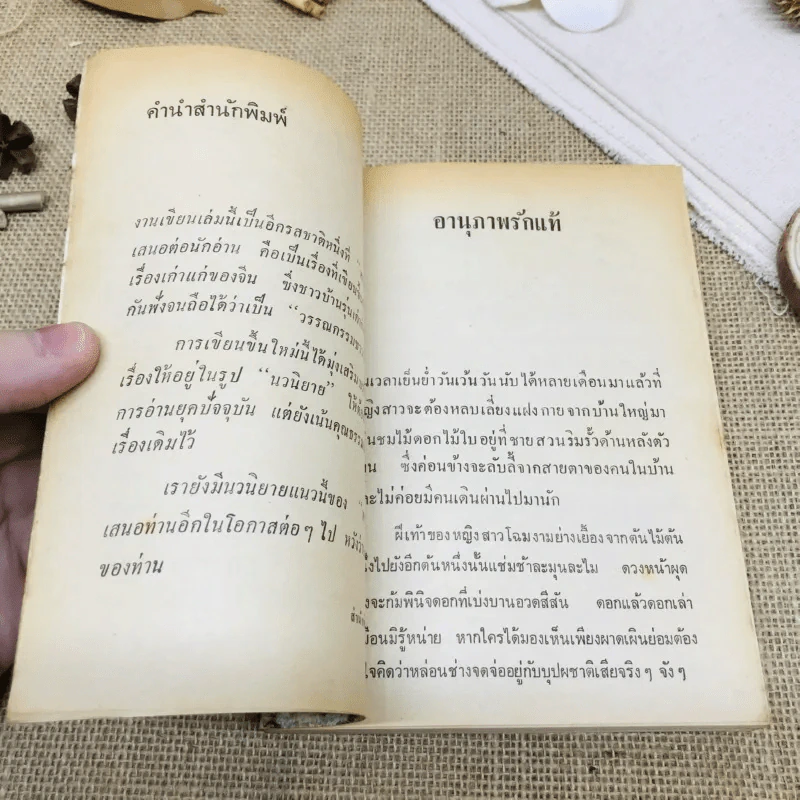 คำนำสำนักพิมพ์
งานเขียนเล่มนี้เป็นอีกรสชาติหนึ่งที่
เสนอต่อนักอ่าน คือเป็นเรื่องที่เขียนขึ้น
เรื่องเก่าแก่ของจีน ซึ่งชาวบ้านรุ่น
กันฟังจนถือได้ว่าเป็น “วรรณกรรม
การเขียนขึ้นใหม่นี้ได้มุ่งเสริม
เรื่องให้อยู่ในรูป “นวนิยาย” ให้
การอ่านยุคปัจจุบัน แต่ยังเน้นคุณธรรม
เรื่องเดิมไว้
เรายังมีนวนิยายแนวนี้ของ
เสนอท่านอีกในโอกาสต่อๆ ไป หวังว่า
ของท่าน
อานุภาพรักแท้
เวลาเย็นย่ำวันเว้นวันนับได้หลายเดือนมาแล้วที่
หญิงสาวจะต้องหลบเลี่ยงแฝงกายจากบ้านใหญ่มา
ชมไม้ดอกไม้ใบอยู่ที่ชายสวนริมรั้วด้านหลังตัว
ซึ่งค่อนข้างจะลับลี้จากสายตาของคนในบ้าน
ไม่ค่อยมีคนเดินผ่านไปมานัก
ฝีเท้าของหญิงสาวโฉมงามย่างเยื้องจากต้นไม้ต้น
ไปยังอีกต้นหนึ่งนั้นแช่มช้าละมุนละไม ดวงหน้าผุด
จะก้มพินิจดอกที่เบ่งบานอวดสีสัน ดอกแล้วดอกเล่า
มิรู้หน่าย หากใครได้มองเห็นเพียงผาดเผินย่อมต้อง
คิดว่าหล่อนช่างจดจ่ออยู่กับบุปผชาติเสียจริงๆ จังๆ